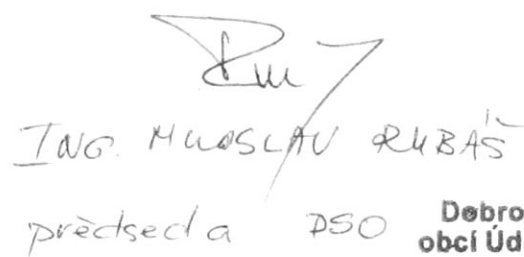 ING. MILOSLAV RUBÁŠ
předseda DSO
Dobro
obcí Úd